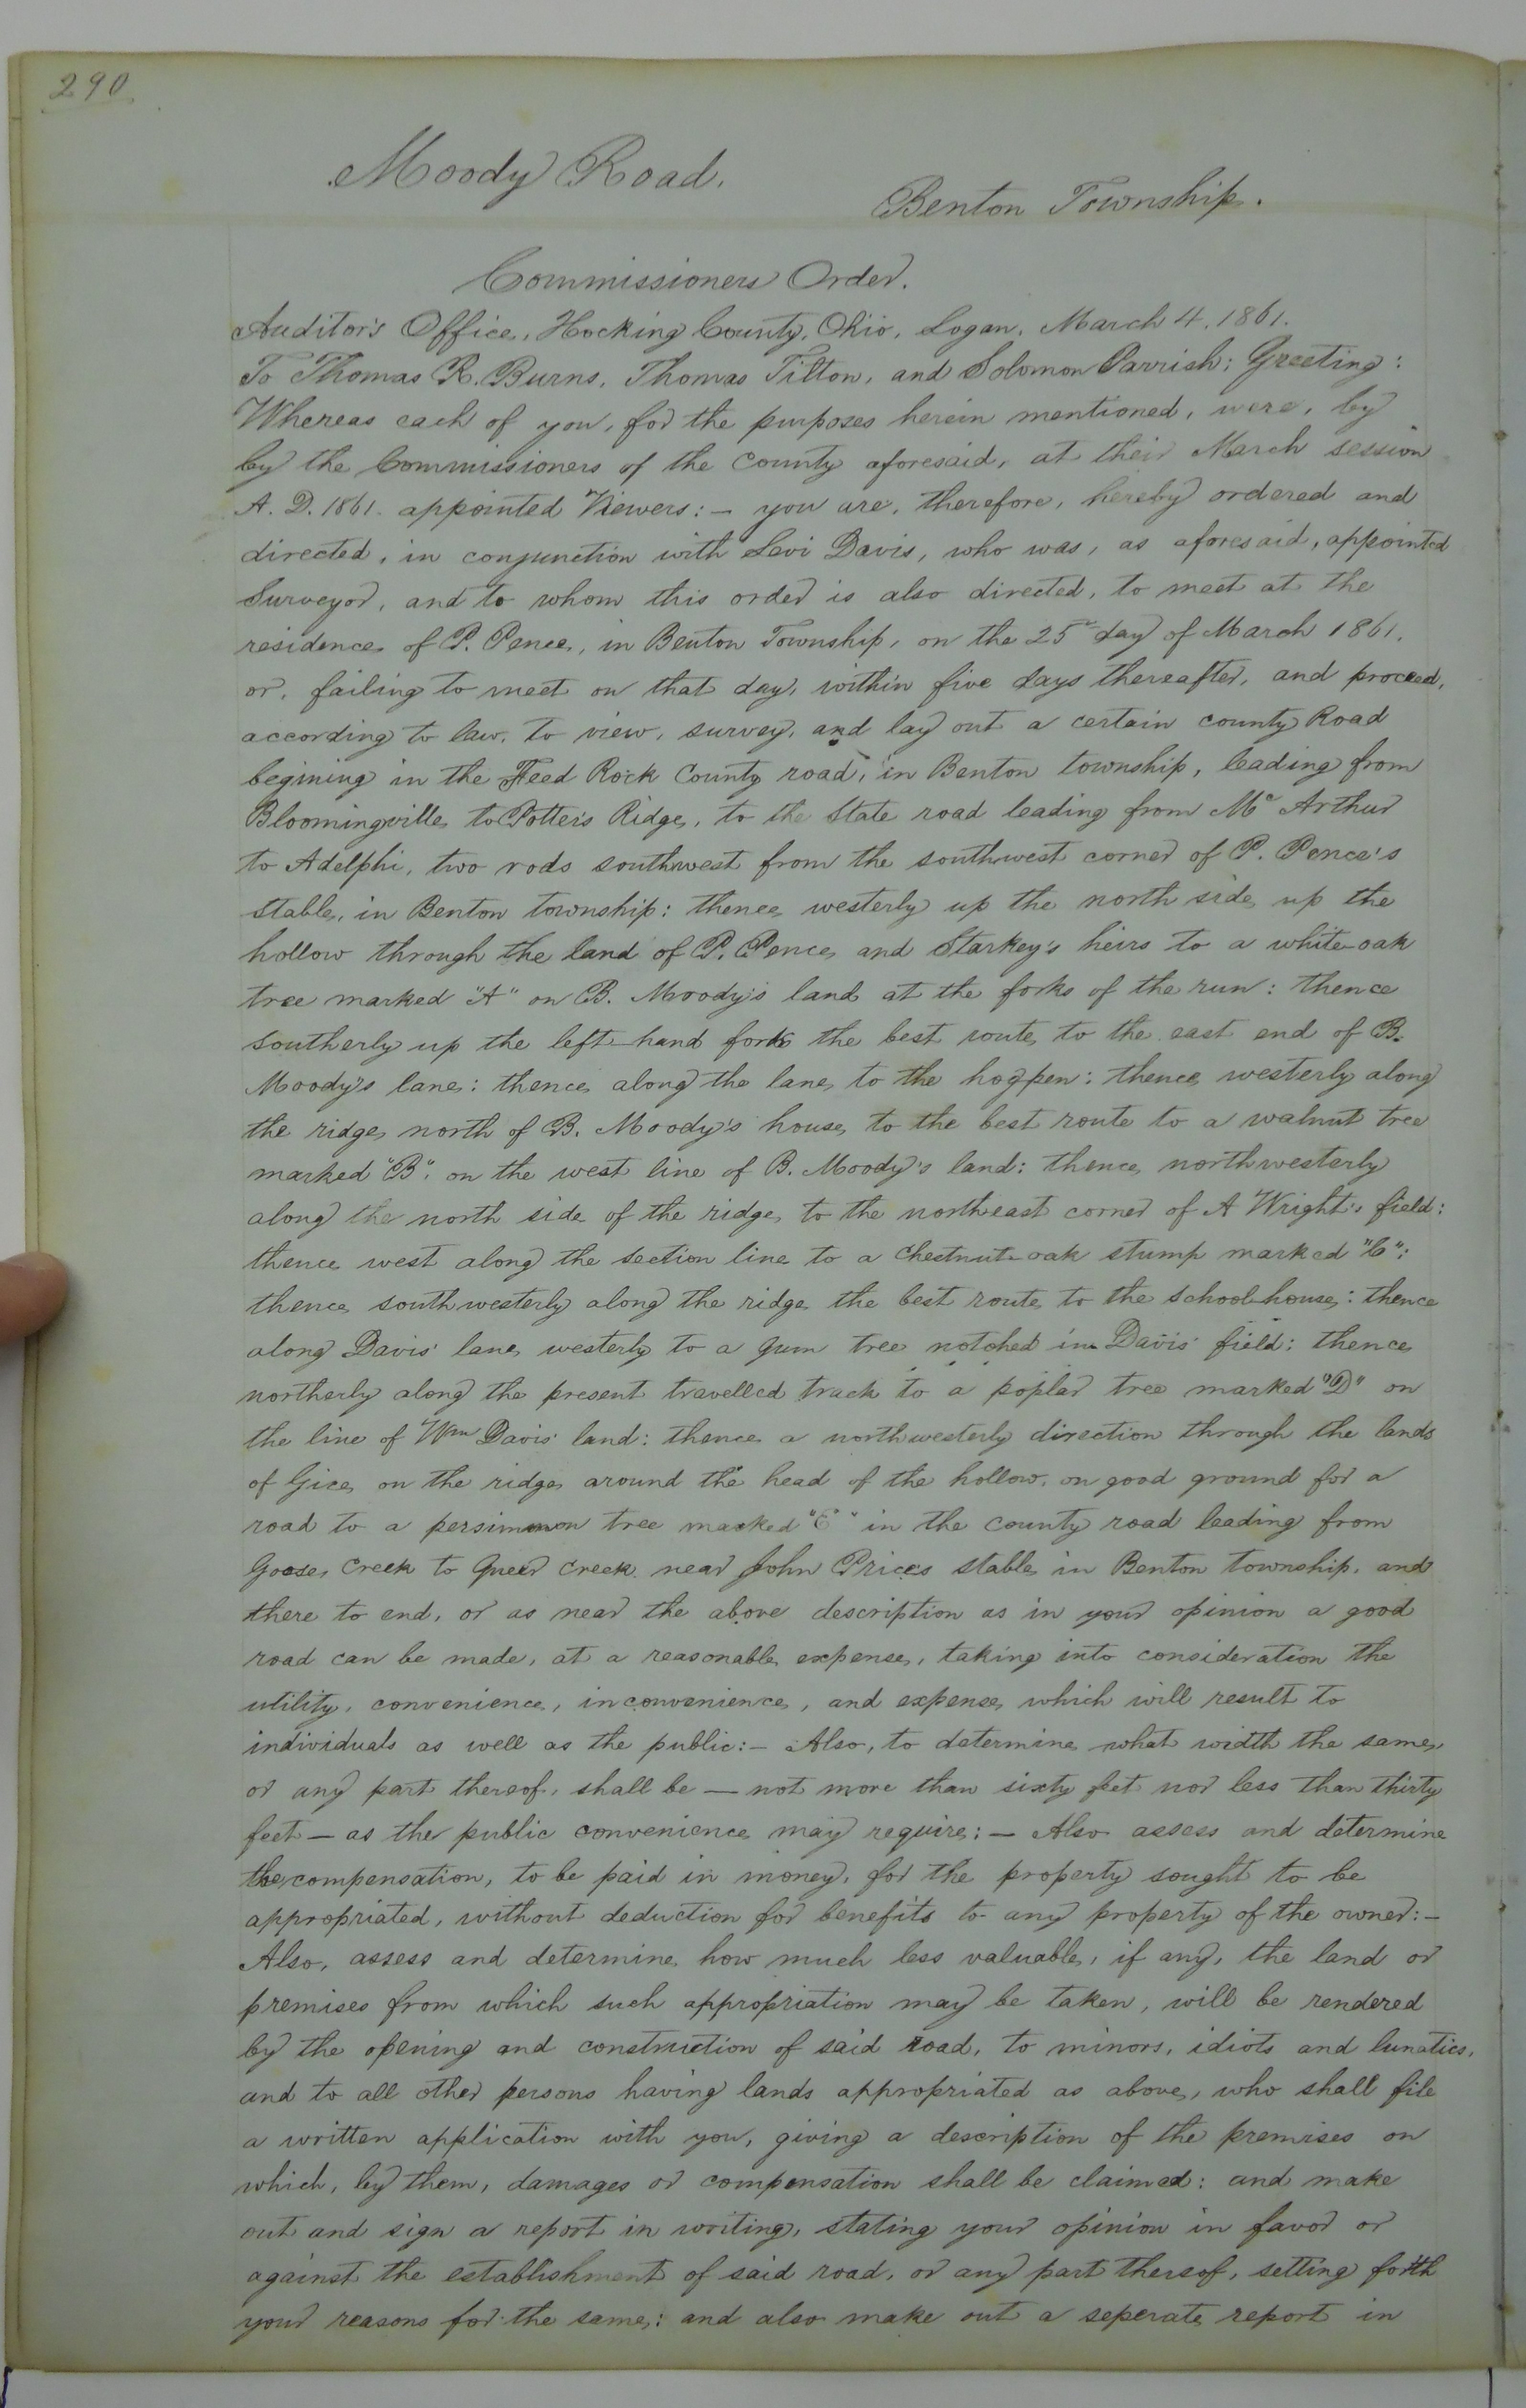 290
Moody Road.
Benton Township.
Commissioners Order.
Auditor's Office, Hocking County, Ohio, Logan, March 4. 1861.
To Thomas R. Burns, Thomas Tilton, and Solomon Parrish; Greeting:
Whereas each of you, for the purposes herein mentioned, were, by
by the Commissioners of the County aforesaid, at their March session
A. D. 1861. appointed Viewers: — you are, therefore, hereby ordered and
directed, in conjunction with Levi Davis, who was, as aforesaid, appointed
Surveyor, and to whom this order is also directed, to meet at the
residence of P. Pence, in Benton Township, on the 25th day of March 1861.
or, failing to meet on that day, within five days thereafter, and proceed,
according to law, to view, survey, and lay out a certain county Road
begining in the Feed Rock County road, in Benton township, leading from
Bloomingville to Potter's Ridge, to the State road leading from Mc Arthur
to Adelphi, two rods southwest from the southwest corner of P. Pence's
stable, in Benton township: thence westerly up the north side up the
hollow through the land of P. Pence and Starkey's heirs to a white-oak
tree marked "A" on B. Moody's land at the forks of the run: thence
southerly up the left-hand fork the best route to the east end of B.
Moody's lane: thence along the lane to the hogpen: thence westerly along
the ridge north of B. Moody's house to the best route to a walnut tree
marked "B". on the west line of B. Moody's land: thence northwesterly
along the north side of the ridge to the northeast corner of A Wright's field:
thence west along the section line to a Chestnut-oak stump marked "C":
thence southwesterly along the ridge the best route to the school-house: thence
along Davis' lane westerly to a gum tree notched in Davis' field: thence
northerly along the present travelled track to a poplar tree marked "D" on
the line of Wm Davis' land: thence a northwesterly direction through the lands
of Gice on the ridge around the head of the hollow, on good ground for a
road to a persimmon tree marked "E" in the county road leading from
Goose Creek to Queer Creek near John Price's stable in Benton township, and
there to end, or as near the above description as in your opinion a good
road can be made, at a reasonable expense, taking into consideration the
utility, convenience, inconvenience, and expense which will result to
individuals as well as the public: — Also, to determine what width the same,
or any part thereof, shall be — not more than sixty feet nor less than thirty
feet — as the public convenience may require: — Also assess and determine
the compensation, to be paid in money, for the property sought to be
appropriated, without deduction for benefits to any property of the owner: —
Also, assess and determine how much less valuable, if any, the land or
premises from which such appropriation may be taken, will be rendered
by the opening and construction of said road, to minors, idiots and lunatics,
and to all other persons having lands appropriated as above, who shall file
a written application with you, giving a description of the premises on
which, by them, damages or compensation shall be claimed: and make
out and sign a report in writing, stating your opinion in favor or
against the establishment of said road, or any part thereof, setting forth
your reasons for the same: and also make out a seperate report in